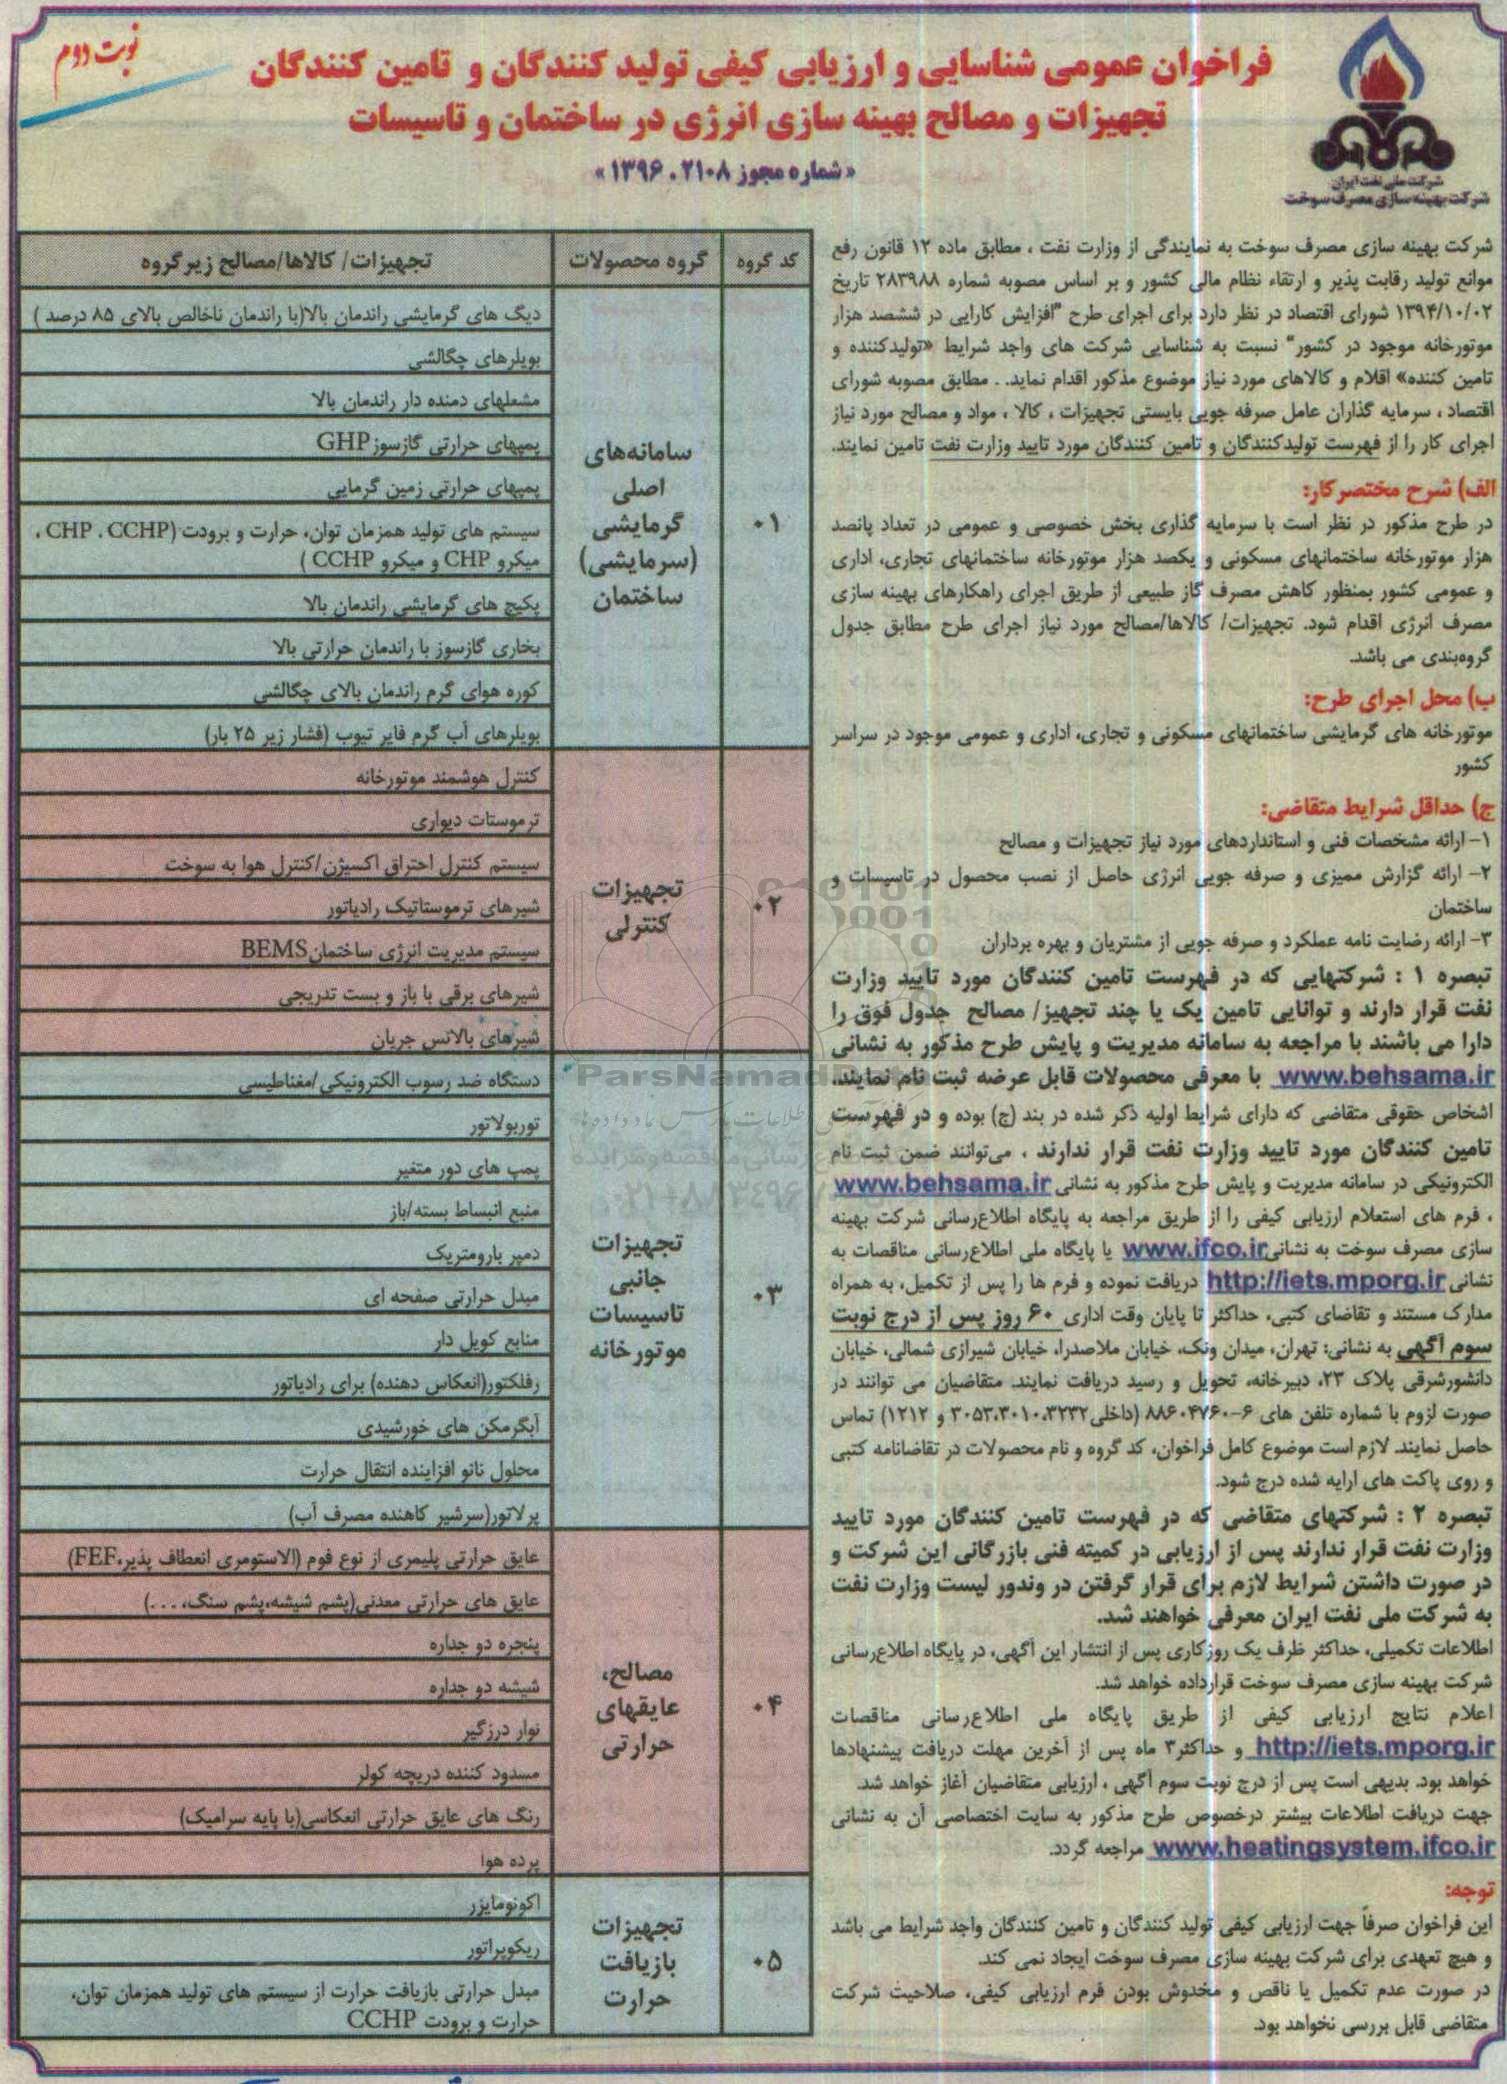 نوبت دوم
فراخوان عمومی شناسایی و ارزیابی کیفی تولید کنندگان و تامین کنندگان
تجهیزات و مصالح بهینه سازی انرژی در ساختمان و تاسیسات
«شماره مجوز ۲۱۰۸ . ۱۳۹۶»
شرکت ملی نفت ایران
شرکت بهینه سازی مصرف سوخت
شرکت بهینه سازی مصرف سوخت به نمایندگی از وزارت نفت ، مطابق ماده ۱۲ قانون رفع
موانع تولید رقابت پذیر و ارتقاء نظام مالی کشور و بر اساس مصوبه شماره ۲۸۳۹۸۸ تاریخ
۱۳۹۴/۱۰/۰۲ شورای اقتصاد در نظر دارد برای اجرای طرح "افزایش کارایی در ششصد هزار
موتورخانه موجود در کشور" نسبت به شناسایی شرکت های واجد شرایط «تولیدکننده و
تامین کننده» اقلام و کالاهای مورد نیاز موضوع مذکور اقدام نماید. . مطابق مصوبه شورای
اقتصاد ، سرمایه گذاران عامل صرفه جویی بایستی تجهیزات ، کالا ، مواد و مصالح مورد نیاز
اجرای کار را از فهرست تولیدکنندگان و تامین کنندگان مورد تایید وزارت نفت تامین نمایند.
الف) شرح مختصر کار:
در طرح مذکور در نظر است با سرمایه گذاری بخش خصوصی و عمومی در تعداد پانصد
هزار موتورخانه ساختمانهای مسکونی و یکصد هزار موتورخانه ساختمانهای تجاری، اداری
و عمومی کشور بمنظور کاهش مصرف گاز طبیعی از طریق اجرای راهکارهای بهینه سازی
مصرف انرژی اقدام شود. تجهیزات/ کالاها/مصالح مورد نیاز اجرای طرح مطابق جدول
گروه‌بندی می باشد.
ب) محل اجرای طرح:
موتورخانه های گرمایشی ساختمانهای مسکونی و تجاری، اداری و عمومی موجود در سراسر
کشور
ج) حداقل شرایط متقاضی:
۱- ارائه مشخصات فنی و استانداردهای مورد نیاز تجهیزات و مصالح
۲- ارائه گزارش ممیزی و صرفه جویی انرژی حاصل از نصب محصول در تاسیسات و
ساختمان
۳- ارائه رضایت نامه عملکرد و صرفه جویی از مشتریان و بهره برداران
تبصره ۱ : شرکتهایی که در فهرست تامین کنندگان مورد تایید وزارت
نفت قرار دارند و توانایی تامین یک یا چند تجهیز/ مصالح جدول فوق را
دارا می باشند با مراجعه به سامانه مدیریت و پایش طرح مذکور به نشانی
www.behsama.ir با معرفی محصولات قابل عرضه ثبت نام نمایند.
اشخاص حقوقی متقاضی که دارای شرایط اولیه ذکر شده در بند (ج) بوده و در فهرست
تامین کنندگان مورد تایید وزارت نفت قرار ندارند ، می‌توانند ضمن ثبت نام
الکترونیکی در سامانه مدیریت و پایش طرح مذکور به نشانی www.behsama.ir
، فرم های استعلام ارزیابی کیفی را از طریق مراجعه به پایگاه اطلاع‌رسانی شرکت بهینه
سازی مصرف سوخت به نشانی www.ifco.ir یا پایگاه ملی اطلاع‌رسانی مناقصات به
نشانی http://iets.mporg.ir دریافت نموده و فرم ها را پس از تکمیل، به همراه
مدارک مستند و تقاضای کتبی، حداکثر تا پایان وقت اداری ۶۰ روز پس از درج نوبت
سوم آگهی به نشانی: تهران، میدان ونک، خیابان ملاصدرا، خیابان شیرازی شمالی، خیابان
دانشورشرقی پلاک ۲۳، دبیرخانه، تحویل و رسید دریافت نمایند. متقاضیان می توانند در
صورت لزوم با شماره تلفن های ۶-۸۸۶۰۴۷۶۰ (داخلی ۳۰۵۳،۳۰۱۰،۳۲۳۲ و ۱۲۱۲) تماس
حاصل نمایند. لازم است موضوع کامل فراخوان، کد گروه و نام محصولات در تقاضانامه کتبی
و روی پاکت های ارایه شده درج شود.
تبصره ۲ : شرکتهای متقاضی که در فهرست تامین کنندگان مورد تایید
وزارت نفت قرار ندارند پس از ارزیابی در کمیته فنی بازرگانی این شرکت و
در صورت داشتن شرایط لازم برای قرار گرفتن در وندور لیست وزارت نفت
به شرکت ملی نفت ایران معرفی خواهند شد.
اطلاعات تکمیلی، حداکثر ظرف یک روز کاری پس از انتشار این آگهی، در پایگاه اطلاع‌رسانی
شرکت بهینه سازی مصرف سوخت قرارداده خواهد شد.
اعلام نتایج ارزیابی کیفی از طریق پایگاه ملی اطلاع‌رسانی مناقصات
http://iets.mporg.ir و حداکثر ۳ ماه پس از آخرین مهلت دریافت پیشنهادها
خواهد بود. بدیهی است پس از درج نوبت سوم آگهی ، ارزیابی متقاضیان آغاز خواهد شد.
جهت دریافت اطلاعات بیشتر درخصوص طرح مذکور به سایت اختصاصی آن به نشانی
www.heatingsystem.ifco.ir مراجعه گردد.
توجه:
این فراخوان صرفاً جهت ارزیابی کیفی تولید کنندگان و تامین کنندگان واجد شرایط می باشد
و هیچ تعهدی برای شرکت بهینه سازی مصرف سوخت ایجاد نمی کند.
در صورت عدم تکمیل یا ناقص و مخدوش بودن فرم ارزیابی کیفی، صلاحیت شرکت
متقاضی قابل بررسی نخواهد بود.
کد گروه گروه محصولات تجهیزات/ کالاها/مصالح زیرگروه
۰۱
سامانه‌های
اصلی
گرمایشی
(سرمایشی)
ساختمان
دیگ های گرمایشی راندمان بالا(با راندمان ناخالص بالای ۸۵ درصد )
بویلرهای چگالشی
مشعلهای دمنده دار راندمان بالا
پمپهای حرارتی گازسوز GHP
پمپهای حرارتی زمین گرمایی
سیستم های تولید همزمان توان، حرارت و برودت (CHP ، CCHP ،
میکرو CHP و میکرو CCHP )
پکیج های گرمایشی راندمان بالا
بخاری گازسوز با راندمان حرارتی بالا
کوره هوای گرم راندمان بالای چگالشی
بویلرهای آب گرم فایر تیوب (فشار زیر ۲۵ بار)
۰۲
تجهیزات
کنترلی
کنترل هوشمند موتورخانه
ترموستات دیواری
سیستم کنترل احتراق اکسیژن/کنترل هوا به سوخت
شیرهای ترموستاتیک رادیاتور
سیستم مدیریت انرژی ساختمان BEMS
شیرهای برقی با باز و بست تدریجی
شیرهای بالانس جریان
۰۳
تجهیزات
جانبی
تاسیسات
موتورخانه
دستگاه ضد رسوب الکترونیکی/مغناطیسی
توربولاتور
پمپ های دور متغیر
منبع انبساط بسته/باز
دمپر بارومتریک
مبدل حرارتی صفحه ای
منابع کویل دار
رفلکتور(انعکاس دهنده) برای رادیاتور
آبگرمکن های خورشیدی
محلول نانو افزاینده انتقال حرارت
پرلاتور(سرشیر کاهنده مصرف آب)
۰۴
مصالح،
عایقهای
حرارتی
عایق حرارتی پلیمری از نوع فوم (الاستومری انعطاف پذیر،FEF)
عایق های حرارتی معدنی(پشم شیشه،پشم سنگ، . . .)
پنجره دو جداره
شیشه دو جداره
نوار درزگیر
مسدود کننده دریچه کولر
رنگ های عایق حرارتی انعکاسی(با پایه سرامیک)
پرده هوا
۰۵
تجهیزات
بازیافت
حرارت
اکونومایزر
ریکوپراتور
مبدل حرارتی بازیافت حرارت از سیستم های تولید همزمان توان،
حرارت و برودت CCHP